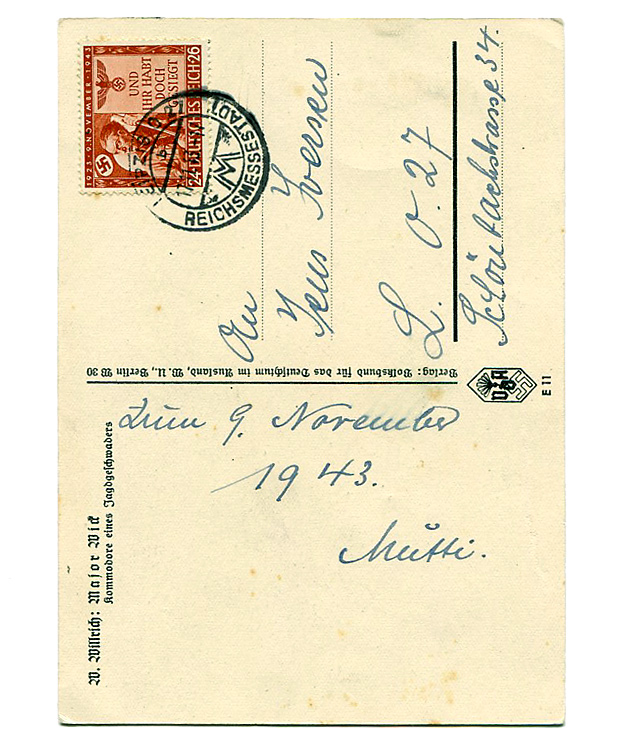 1923 · 9. NOVEMBER · 1943
UND
IHR HABT
DOCH
GESIEGT
24+26 DEUTSCHES REICH
REICHSMESSESTADT
M
An
Jens Iversen
L. O. 27
34.
Verlag: Volksbund für das Deutschtum im Ausland, W. U., Berlin W 30
VDA
E 11
Zum 9. November
1943.
Mutti.
W. Willrich: Major Wick
Kommodore eines Jagdgeschwaders